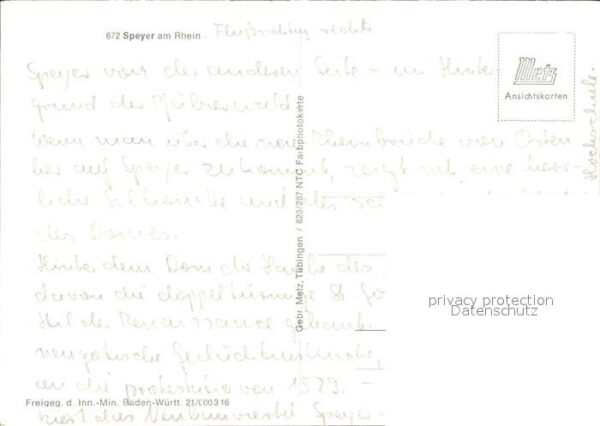 672 Speyer am Rhein . Flußrichtung rechts
Metz
Ansichtskarten
Speyer von der anderen Seite – im Hinter
grund der Pfälzerwald
Wenn man über die neue Rheinbrücke von Osten
her auf Speyer zukommt, zeigt sich eine herr-
liche Silhouette und der
des Domes.
Hinter dem Dom die Kuppel des
davon die doppeltürmige
Stil der Renaissance gebaut
neugotische Gedächtniskirche,
an die Protestation von 1529. –
das Neubauviertel Speyer-
Hochschule.
Gebr. Metz, Tübingen / 820/287 NTC Farbphotokarte
privacy protection
Datenschutz
Freigeg. d. Inn.-Min. Baden-Württ. 21/00316